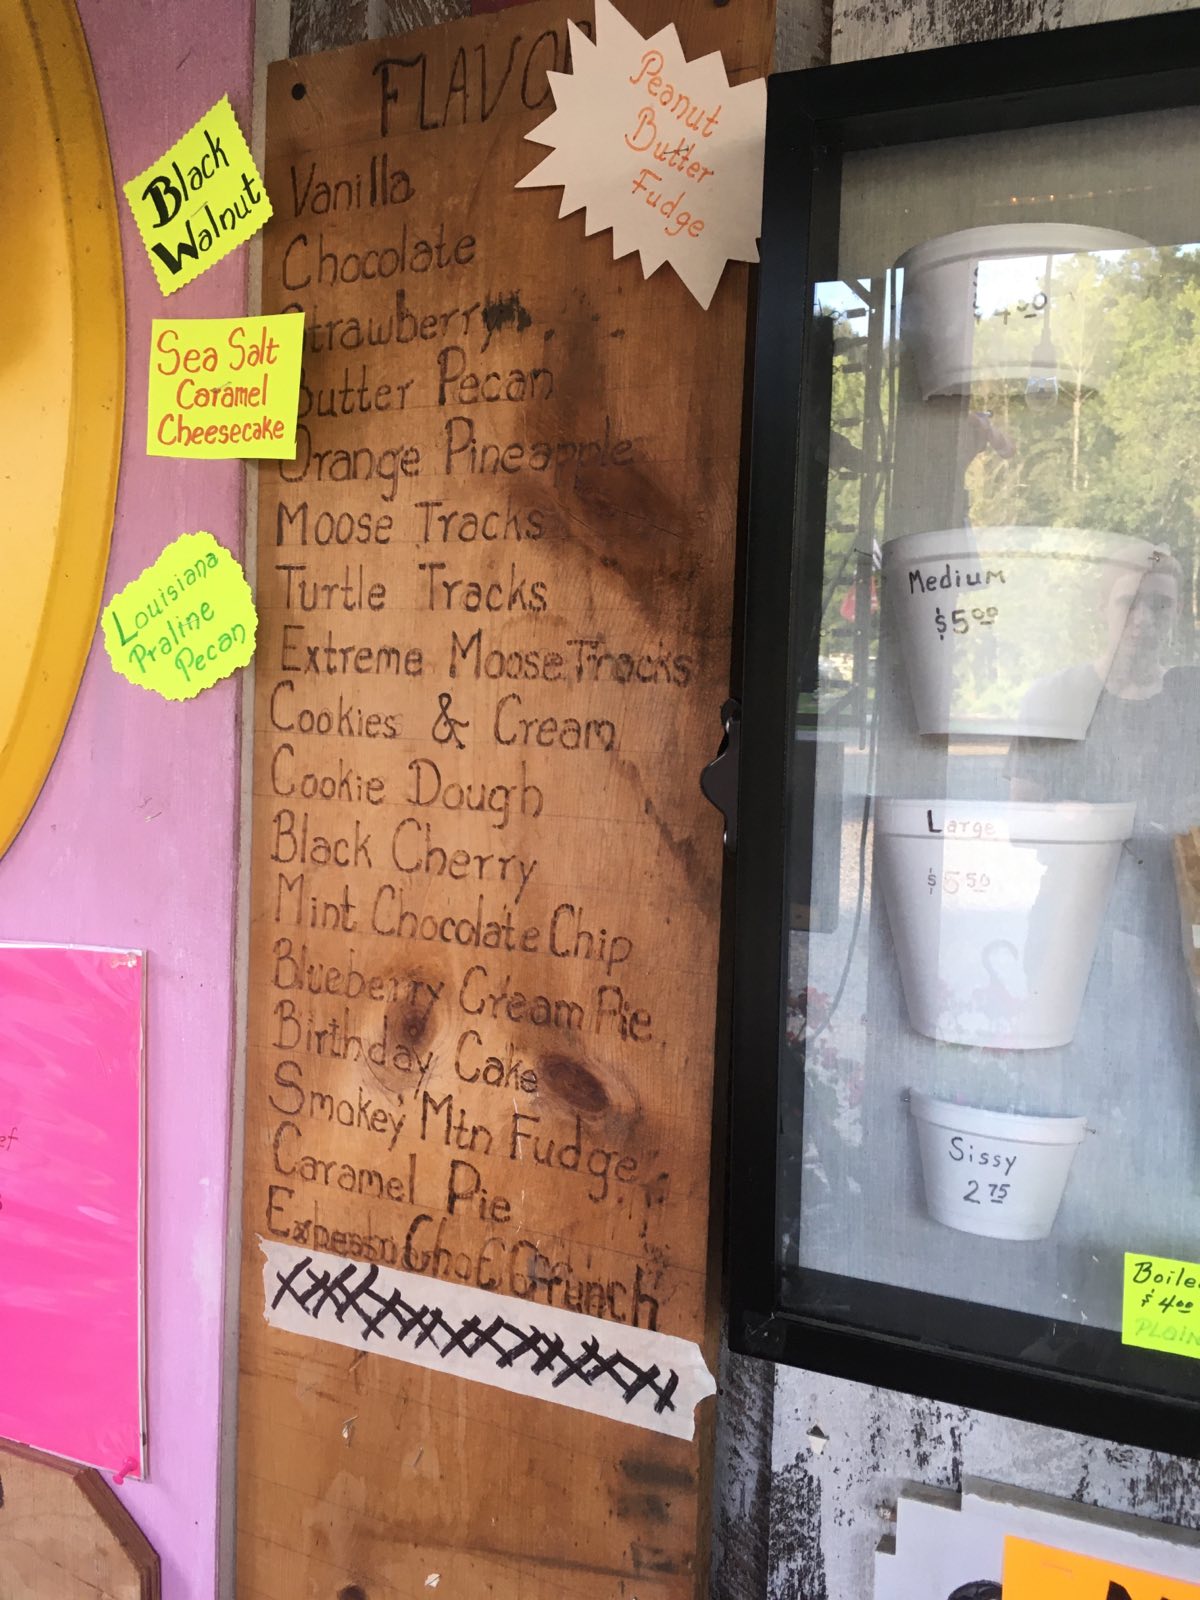 FLAVO
Peanut
Butter
Fudge
Black
Walnut
Sea Salt
Caramel
Cheesecake
Louisiana
Praline
Pecan
Vanilla
Chocolate
trawberry
Butter Pecan
Orange Pineapple
Moose Tracks
Turtle Tracks
Extreme Moose Tracks
Cookies & Cream
Cookie Dough
Black Cherry
Mint Chocolate Chip
Blueberry Cream Pie
Birthday Cake
Smokey Mtn Fudge
Caramel Pie
Choc Crunch
$4.00
Medium
$5.00
Large
$5.50
Sissy
2.75
Boile
$4.00
PLAIN